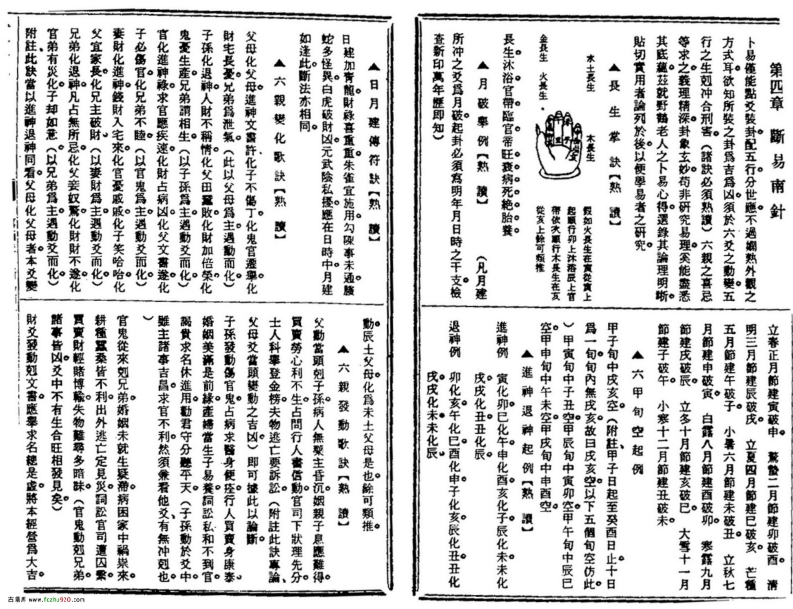 第四章 斷易南針
卜易僅能點爻裝卦配五行分世應不過嫻熟外觀之
方式耳欲知所裝之卦爲吉爲凶須於六爻之動變五
行之生剋冲合刑害(諸訣必須熟讀)六親之喜忌
等求之義理精深卦象玄妙苟非研究易理奚能盡悉
其底蘊茲就野鶴老人之卜易心得選錄其論理明晰
貼切實用者論列於後以便學易者之研究
▲長生掌訣【熟讀】
木長生
水土長生
火長生
金長生
假如火長生在寅從寅上
起順行卯上沐浴辰上官
帶依次順行木長生在亥
從亥上餘可類推
長生沐浴官帶臨官帝旺衰病死絶胎養
▲月破舉例【熟讀】 (凡月建
所冲之爻爲月破起卦必須寫明年月日時之干支檢
查新印萬年歷即知)
立春正月節建寅破申 驚蟄二月節建卯破酉 清
明三月節建辰破戌 立夏四月節建巳破亥 芒種
五月節建午破子 小暑六月節建未破丑 立秋七
月節建申破寅 白露八月節建酉破卯 寒露九月
節建戌破辰 立冬十月節建亥破巳 大雪十一月
節建子破午 小寒十二月節建丑破未
▲六甲旬空起例
甲子旬中戌亥空(附註甲子日起至癸酉日止十日
爲一旬旬內無戌亥故曰戌亥空以下五個旬空仿此
)甲寅旬中子丑空甲辰旬中寅卯空甲午旬中辰巳
空甲申旬中午未空甲戌旬中申酉空
▲進神退神起例【熟讀】
進神例 寅化卯巳化午申化酉亥化子辰化未未化
戌戌化丑丑化辰
退神例 卯化寅午化巳酉化申子化亥辰化丑丑化
戌戌化未未化辰
▲日月建傳符訣【熟讀】
日建加青龍財祿喜重重朱雀宜施用勾陳事未通騰
蛇多怪異白虎破財凶元武陰私擾應在日時中月建
如逢此斷法亦相同
▲六親變化歌訣【熟讀】
父母化父母進神文書許化子不傷丁化鬼官遷舉化
財宅長憂兄弟爲洩氣(此以父母爲主遇動而化)
子孫化退神人財不稱情化父田蠶敗化財加倍榮化
鬼憂生產兄弟謂相生(以子孫爲主遇動爻而化)
官化進神祿求官應疾速化財占病凶化父文書遂化
子必傷官化兄弟不睦(以官鬼爲主遇動爻而化)
妻財化進神錢財入宅來化官憂戚戚化子笑哈哈化
父宜家長化兄主破財(以妻財爲主遇動爻而化)
兄弟化退神凡占無所忌化父妾奴驚化財財不遂化
官弟有災化子却如意(以兄弟爲主遇動爻而化)
附註此訣當以進神退神同看父母化父母者本爻變
動辰土父母化爲未土父母是也餘可類推
▲六親發動歌訣【熟讀】
父動當頭剋子孫病人無藥主昏沉姻親子息應難得
買賣勞心利不生占問行人書信動官司下狀理先分
士人科舉登金榜失物逃亡要訴訟(附註此訣專論
父母爻當頭變動之吉凶)即可據此以論斷
子孫發動傷官鬼占病求醫身便痊行人買賣身康泰
婚姻美滿是前緣產婦當生子易養詞訟私和不到官
謁貴求名休進用勸君守分聽乎天(子孫動於爻中
雖主諸事吉昌求官不利然須兼看他爻有無冲剋也
)
官鬼從來剋兄弟婚姻未就生疑滯病困家中禍祟來
耕種蠶桑皆不利出外逃亡定見災詞訟官司遭囚繫
買賣財輕賭博輸失物難尋多暗昧(官鬼動剋兄弟
諸事皆凶爻中不有生合旺相發見矣)
財爻發動剋文書應舉求名總是虛將本經營爲大吉
古易库 www.fczhu920.com